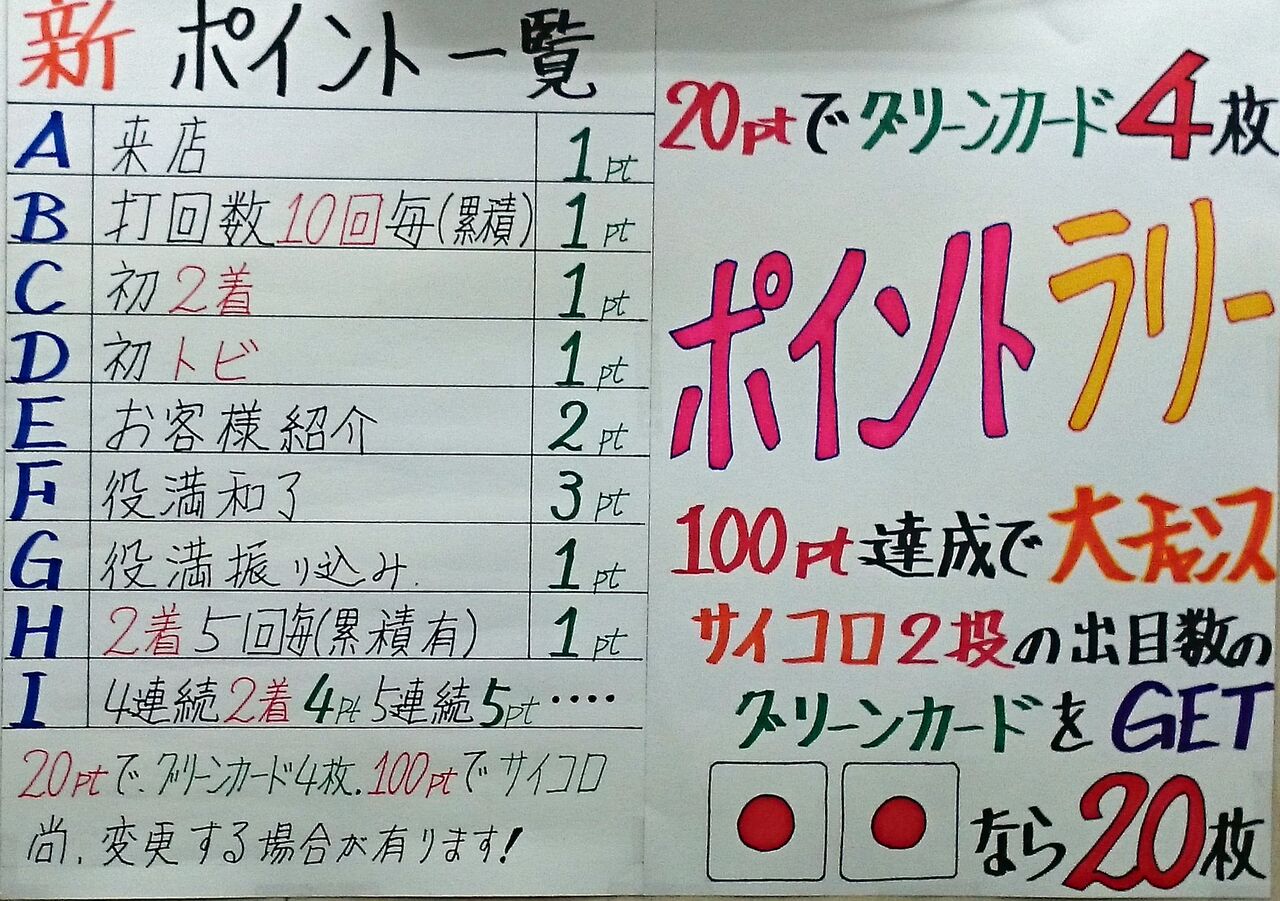 新 ポイント一覧
A 来店 1pt
B 打回数10回毎(累積) 1pt
C 初2着 1pt
D 初トビ 1pt
E お客様紹介 2pt
F 役満和了 3pt
G 役満振り込み. 1pt
H 2着5回毎(累積有) 1pt
I 4連続2着4pt5連続5pt‥‥
20ptで、グリーンカード4枚.100ptでサイコロ
尚、変更する場合が有ります!
20ptでグリーンカード4枚
ポイントラリー
100pt達成で大チャンス
サイコロ2投の出目数の
グリーンカードをGET
なら20枚